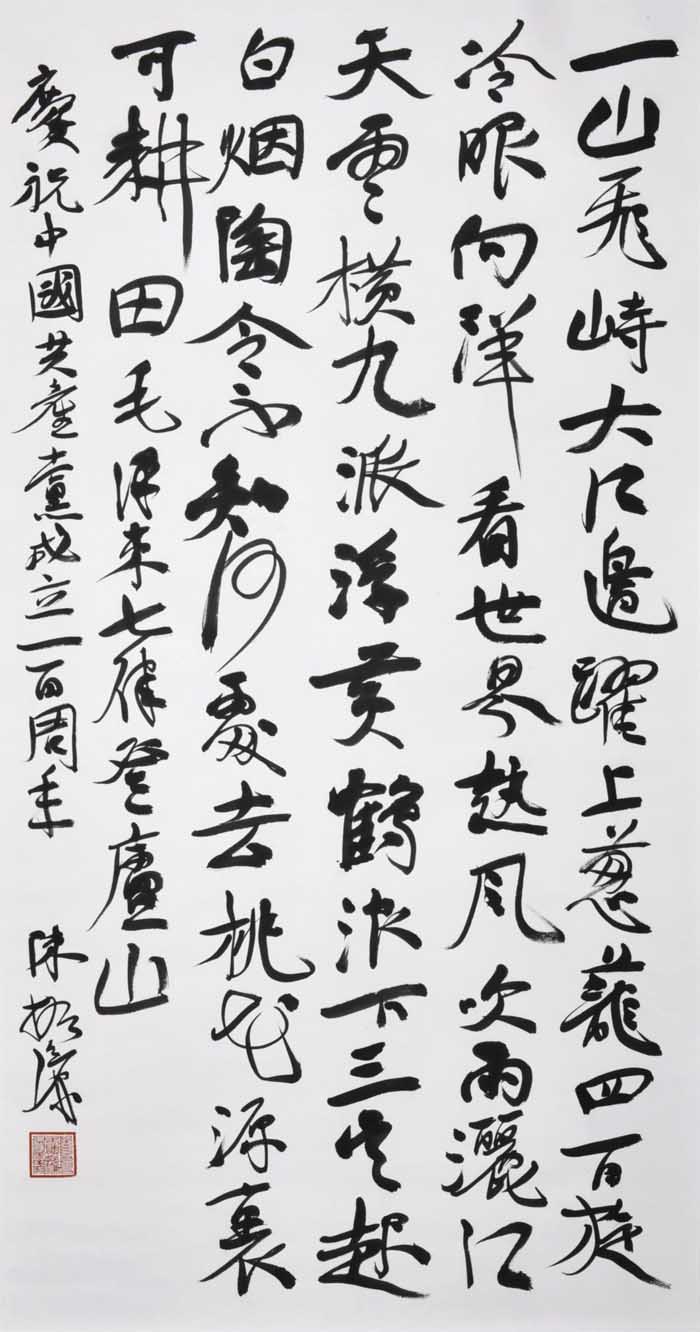 一山飛峙大江邊躍上葱蘢四百旋
冷眼向洋看世界熱風吹雨灑江
天雲橫九派浮黃鶴浪下三吳起
白烟陶令不知何處去桃花源裏
可耕田毛澤東七律登廬山
慶祝中國共產黨成立一百周年 陳振濂